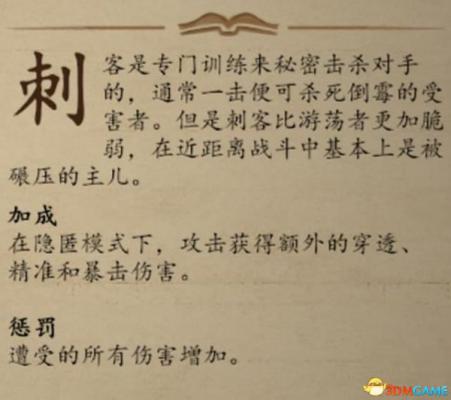 刺客是专门训练来秘密击杀对手
的，通常一击便可杀死倒霉的受
害者。但是刺客比游荡者更加脆
弱，在近距离战斗中基本上是被
碾压的主儿。
加成
在隐匿模式下，攻击获得额外的穿透、
精准和暴击伤害。
惩罚
遭受的所有伤害增加。
3DMGAME